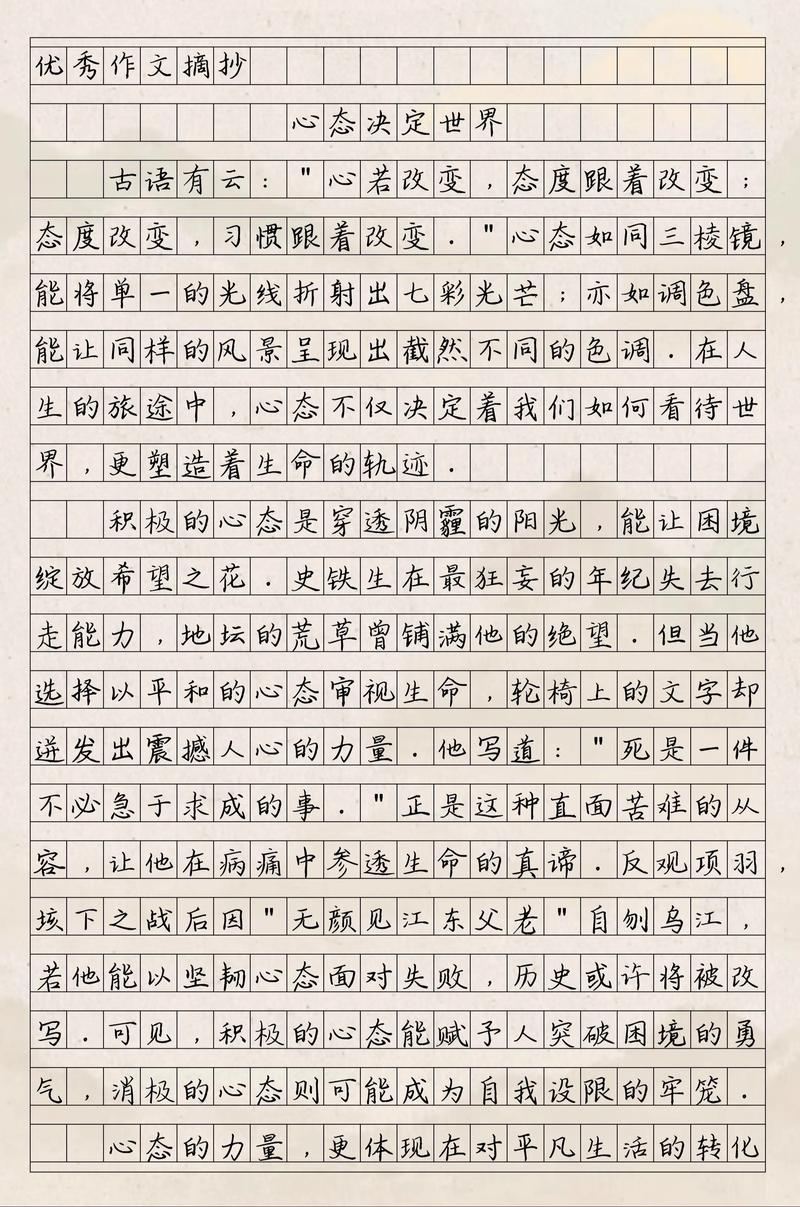 优秀作文摘抄
心态决定世界
古语有云："心若改变,态度跟着改变;
态度改变,习惯跟着改变."心态如同三棱镜,
能将单一的光线折射出七彩光芒;亦如调色盘,
能让同样的风景呈现出截然不同的色调.在人
生的旅途中,心态不仅决定着我们如何看待世
界,更塑造着生命的轨迹.
积极的心态是穿透阴霾的阳光,能让困境
绽放希望之花.史铁生在最狂妄的年纪失去行
走能力,地坛的荒草曾铺满他的绝望.但当他
选择以平和的心态审视生命,轮椅上的文字却
迸发出震撼人心的力量.他写道:"死是一件
不必急于求成的事."正是这种直面苦难的从
容,让他在病痛中参透生命的真谛.反观项羽,
垓下之战后因"无颜见江东父老"自刎乌江,
若他能以坚韧心态面对失败,历史或许将被改
写.可见,积极的心态能赋予人突破困境的勇
气,消极的心态则可能成为自我设限的牢笼.
心态的力量,更体现在对平凡生活的转化